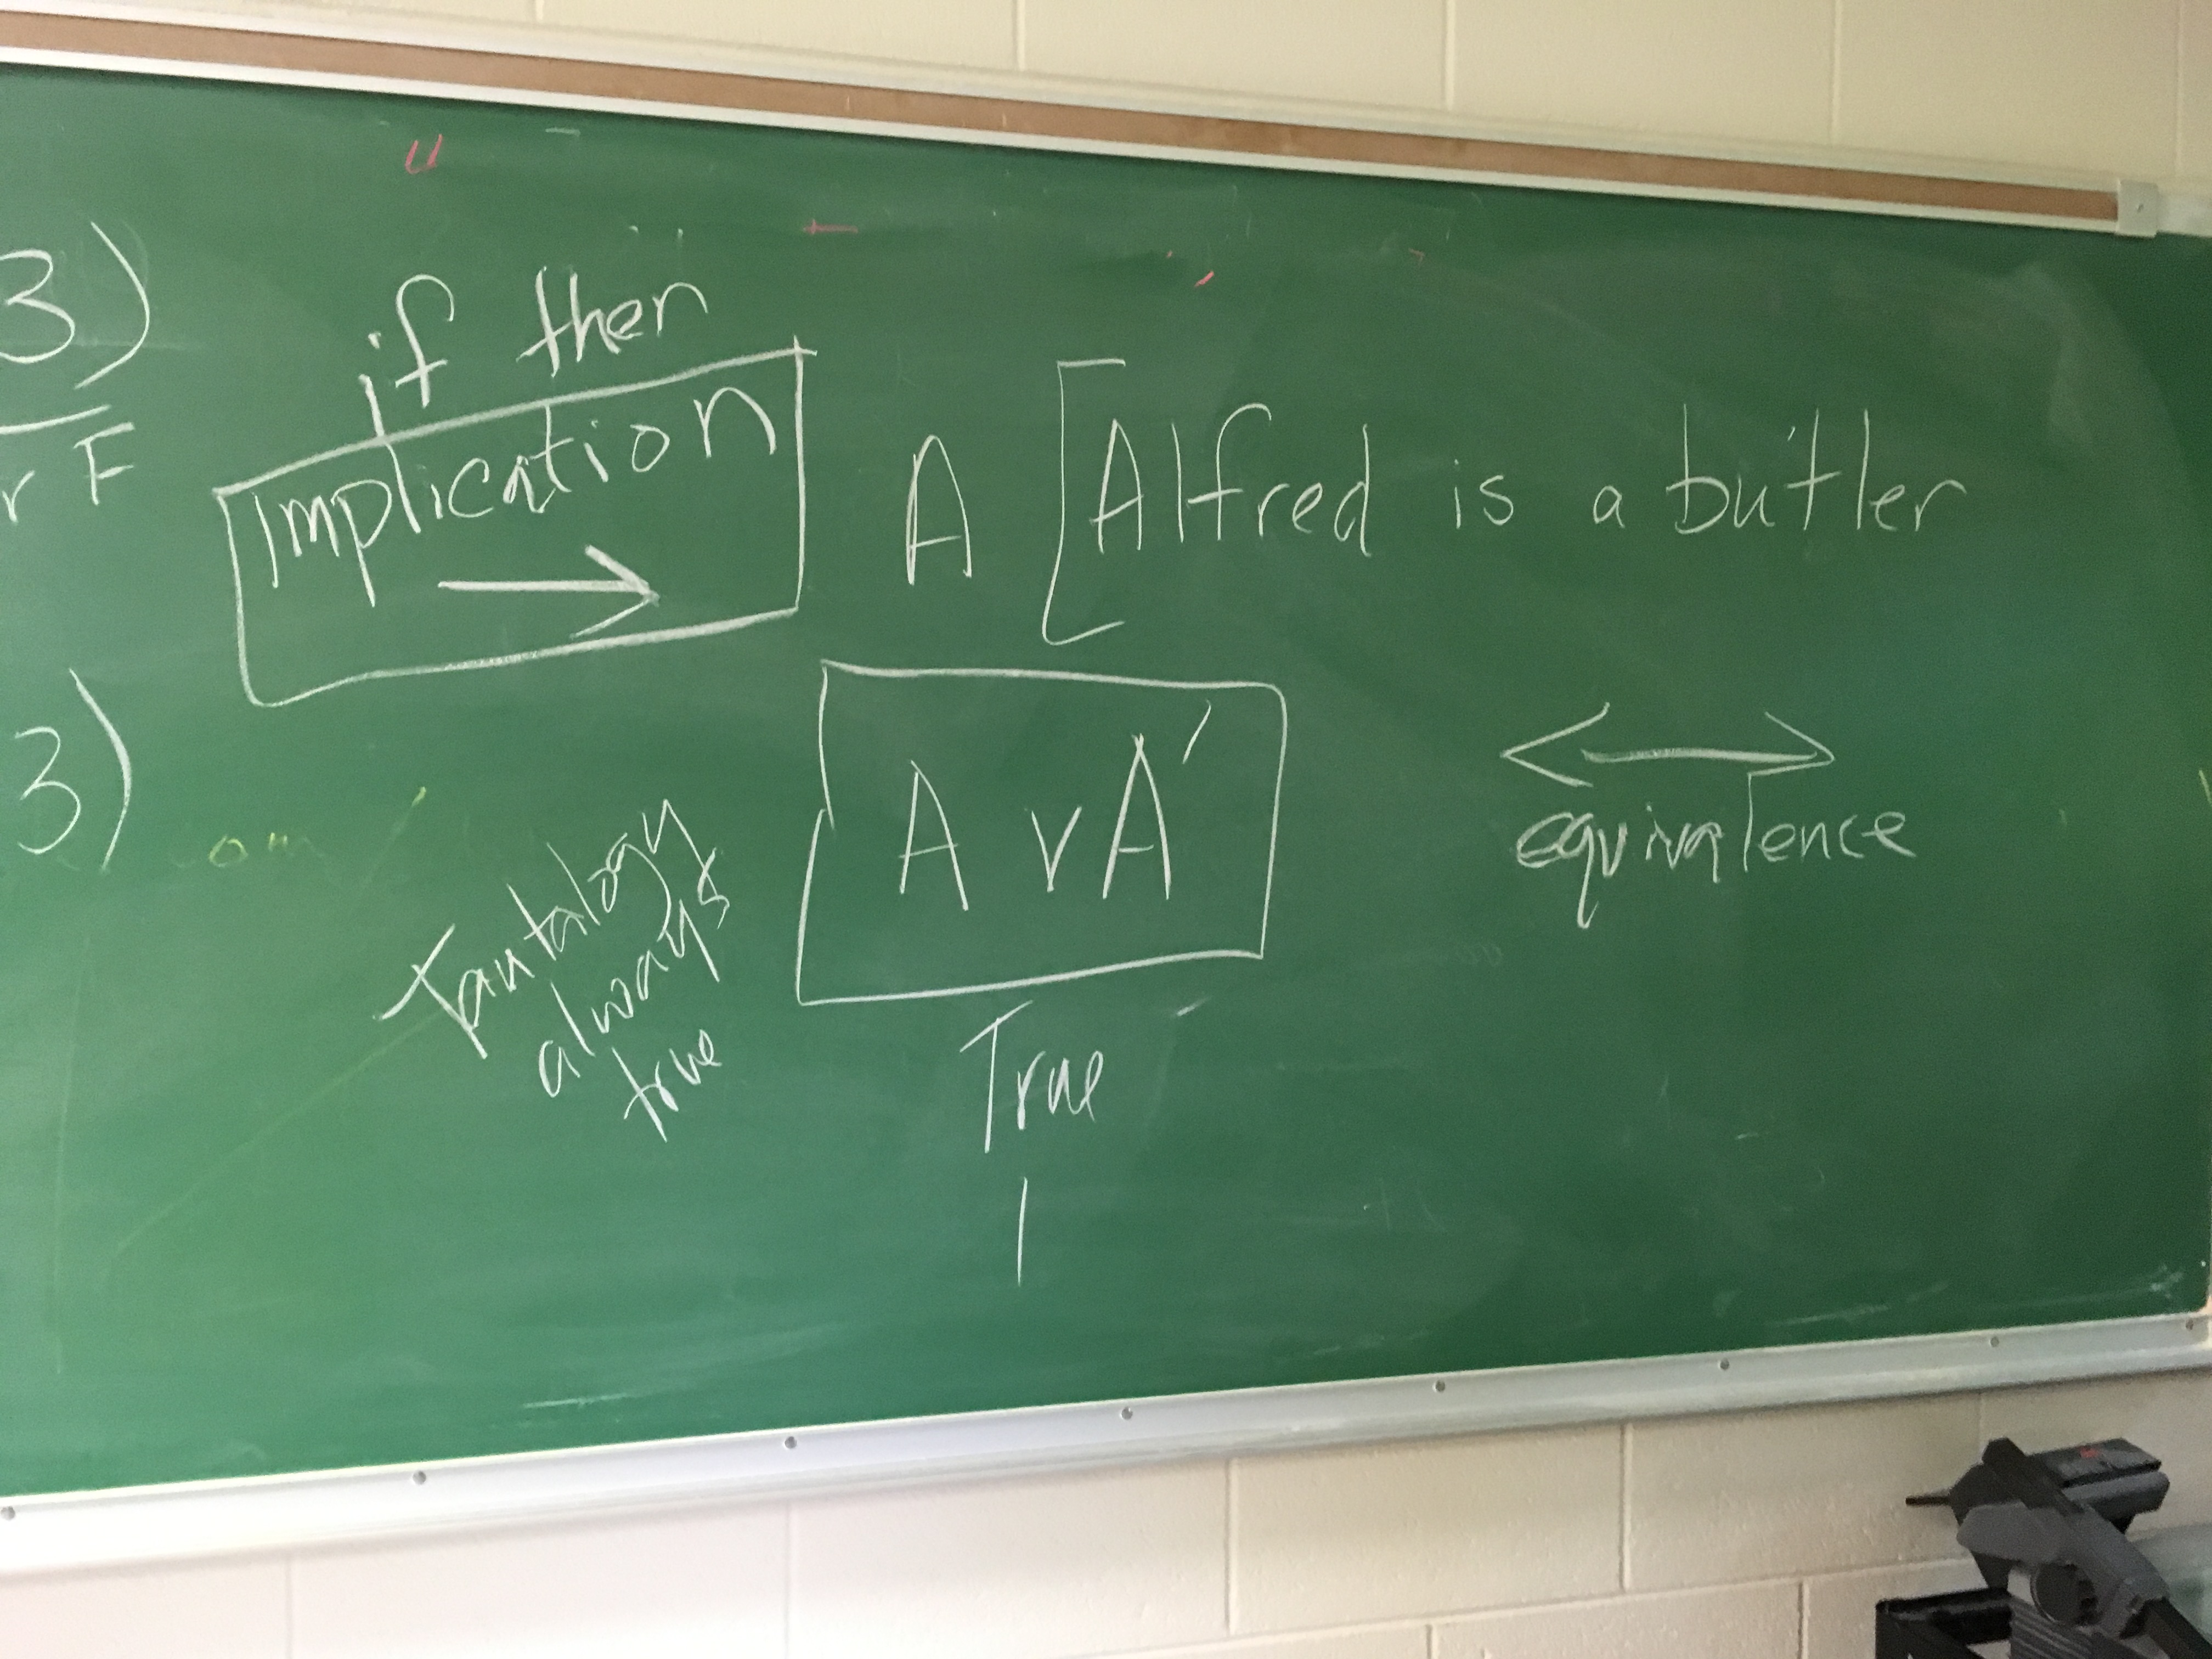 3)
r F
if then
Implication
→
A [Alfred is a butler
3)
A v A′
↔
equivalence
Tautology
always
true
True
1